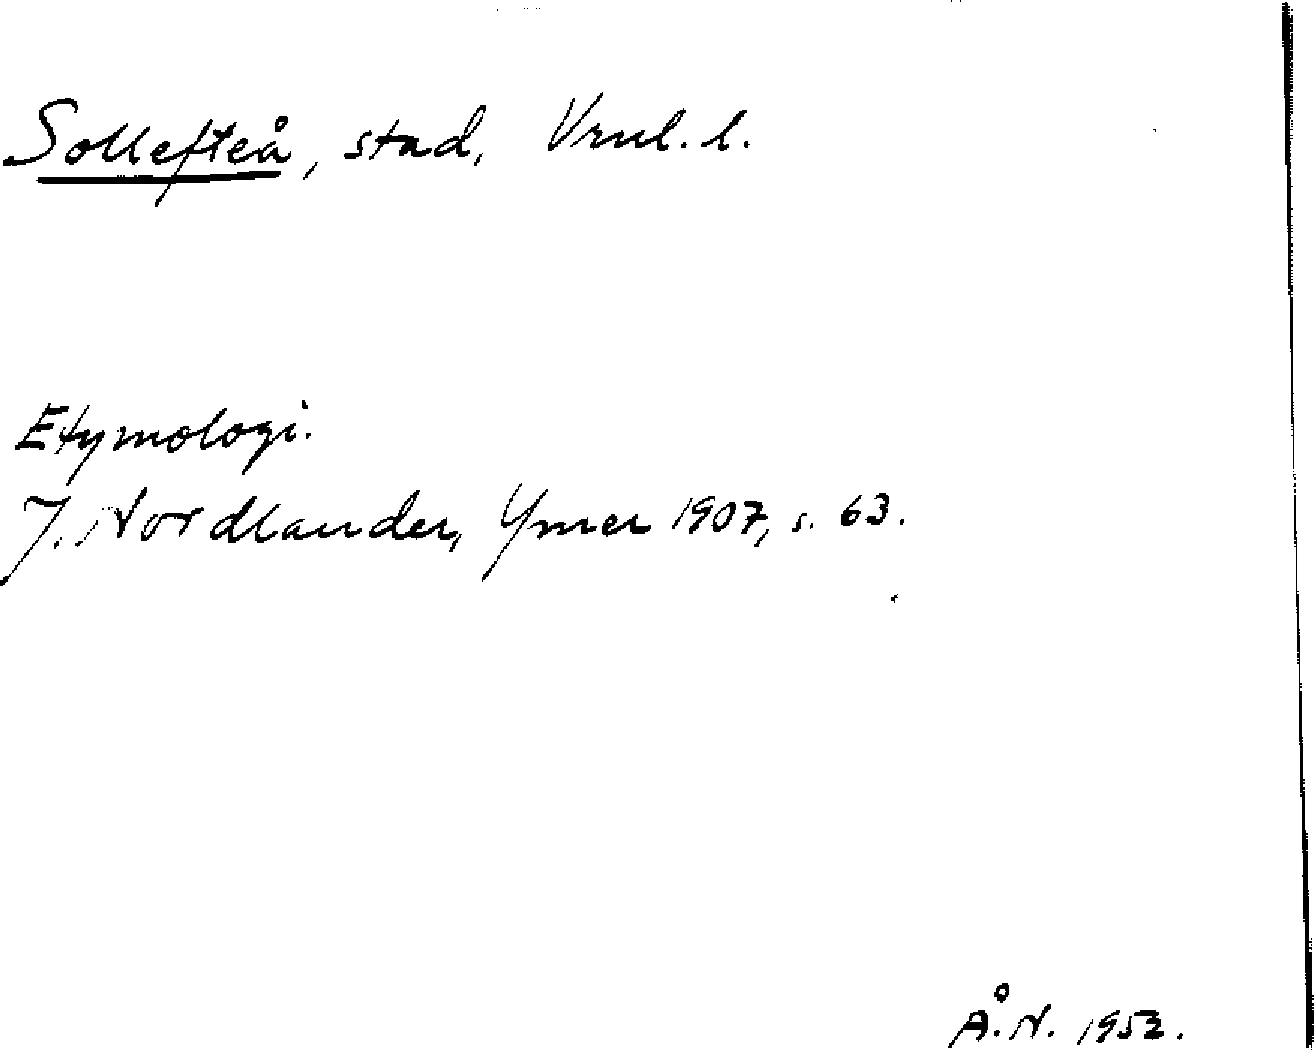 Sollefteå, stad, Vrnl. l.
Etymologi.
J. Nordlander, Ymer 1907, s. 63.
Å. N. 1952.